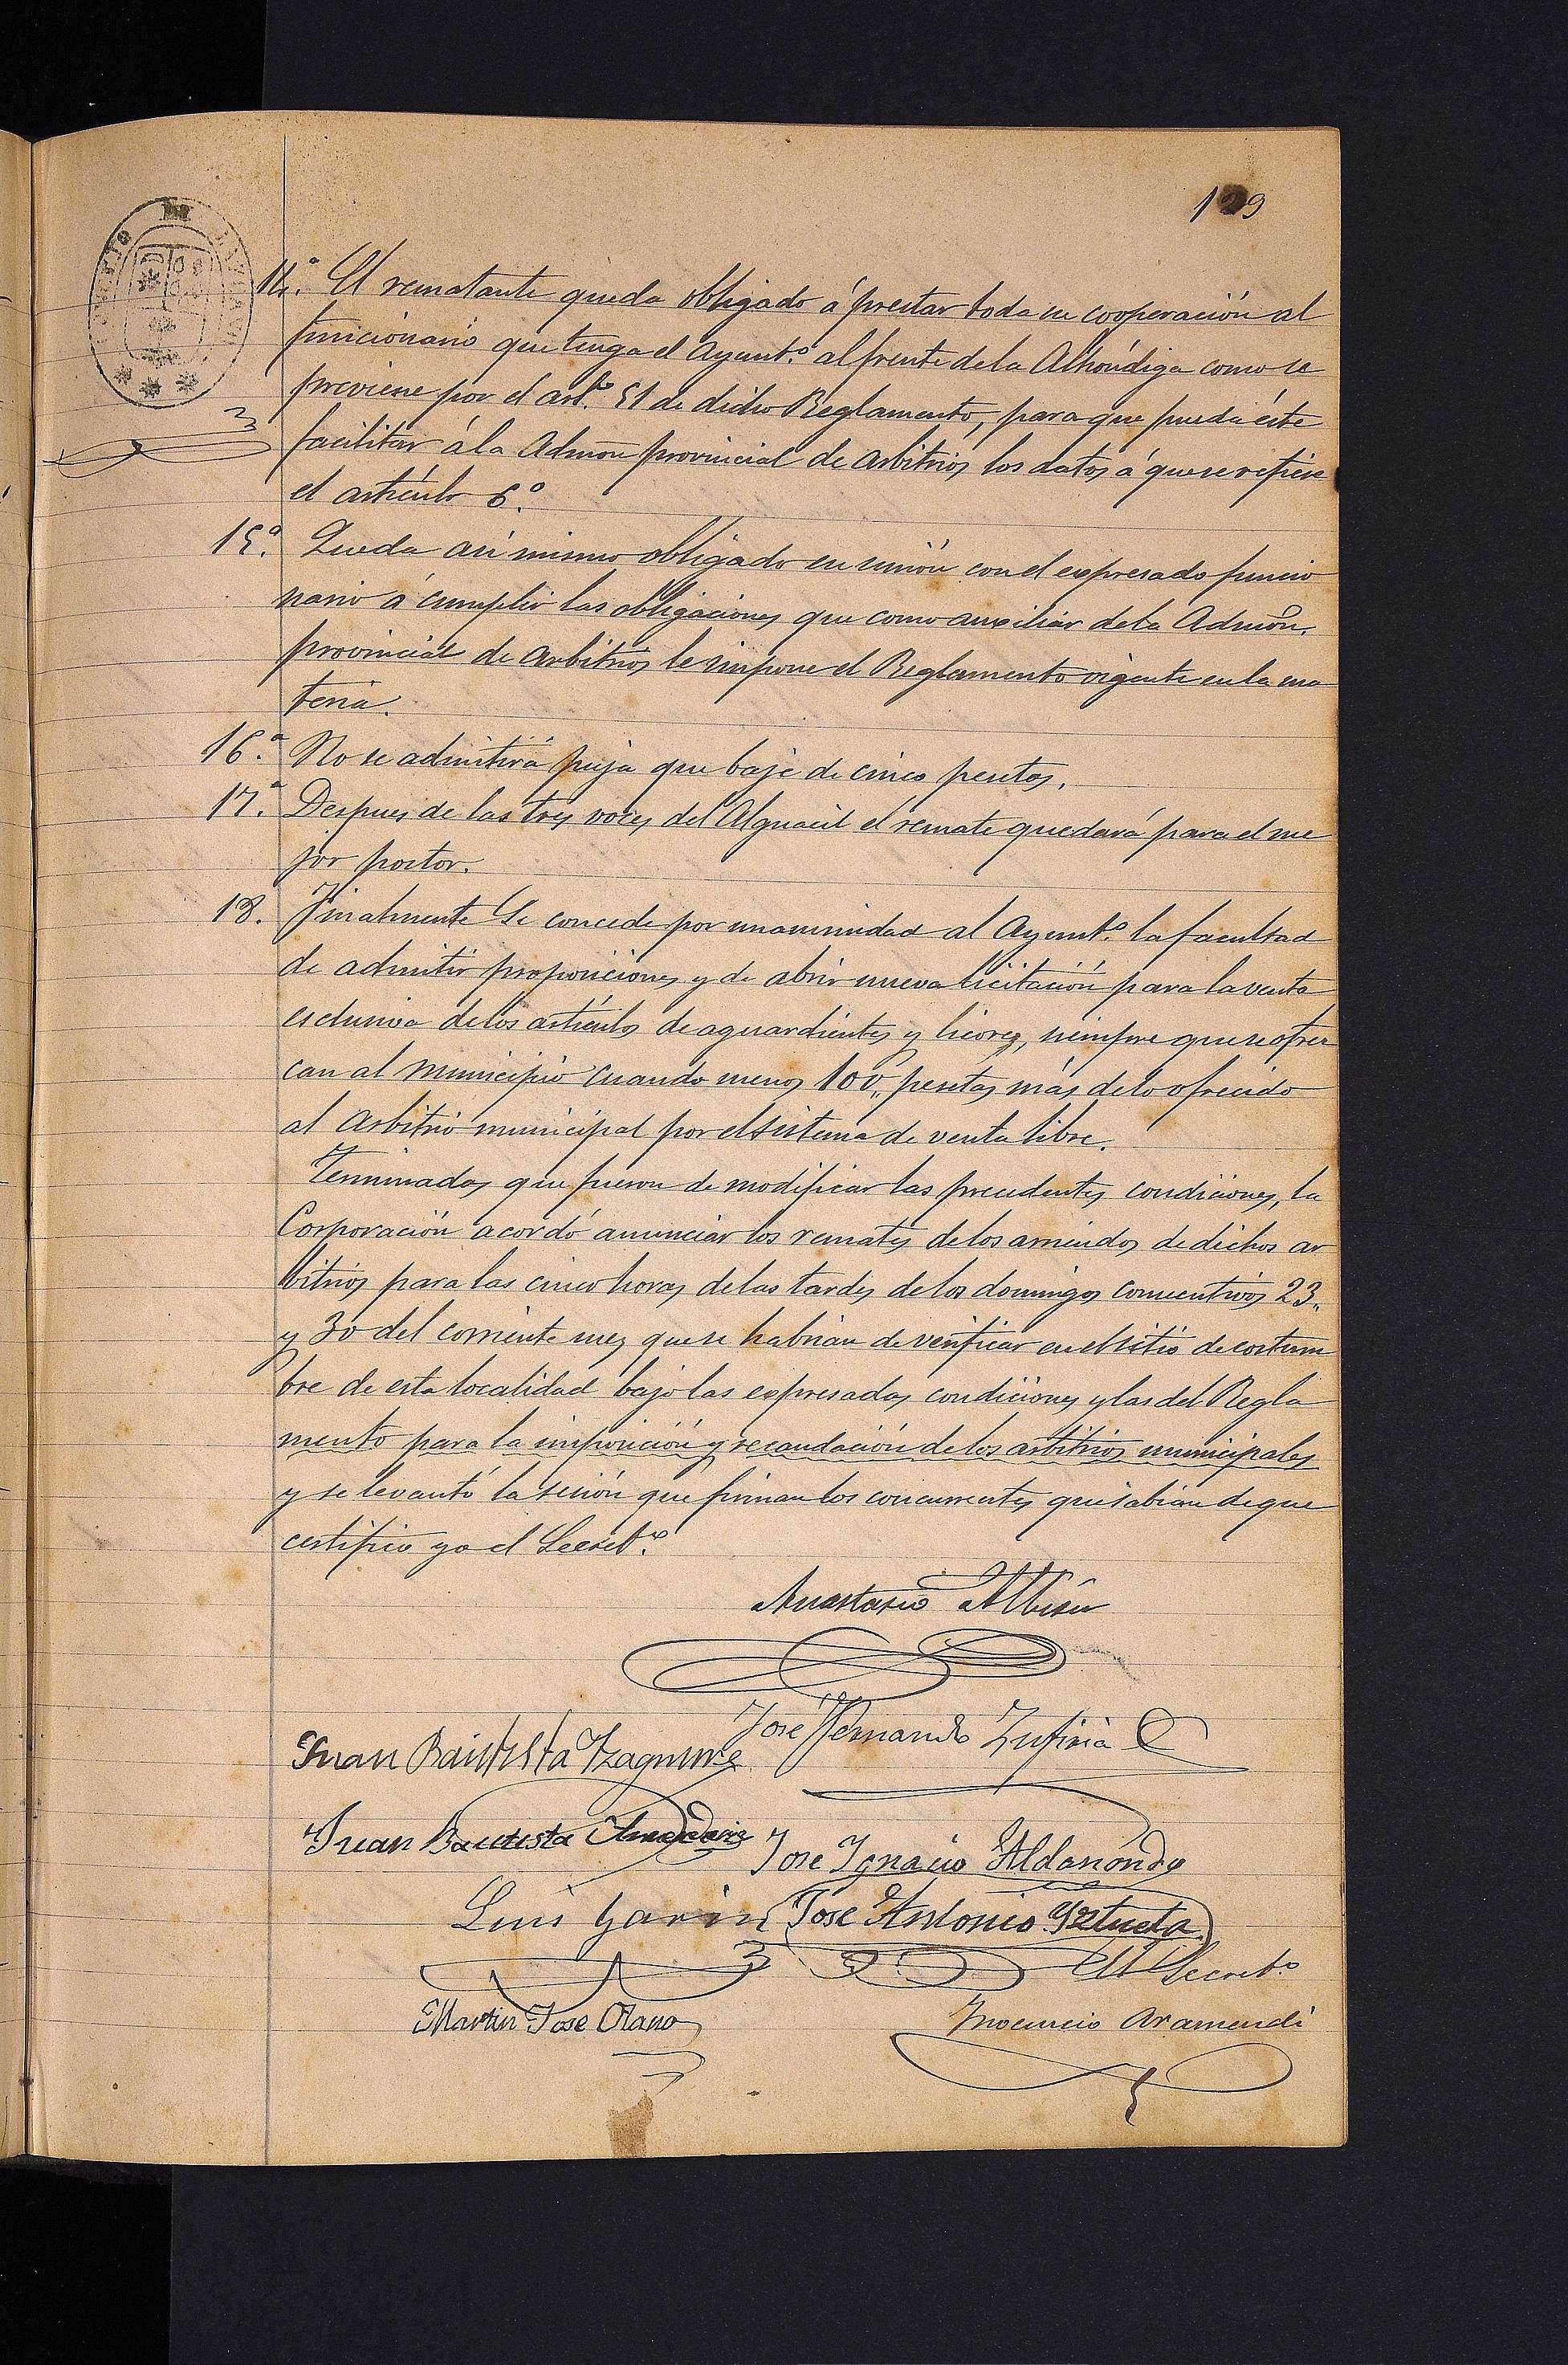 129
14.ª El rematante queda obligado á prestar toda su cooperación al
funcionario que tenga el Ayunt.º al frente de la Alhóndiga como se
previene por el art.º 51 de dicho Reglamento, para que pueda éste
facilitar á la Admon provincial de Arbitrios, los datos á que se refiere
el artículo 6.º
15.ª Queda así mismo obligado en unión con el expresado funcio
nario á cumplir las obligaciones que como auxiliar de la Admón.
provincial de Arbitrios le impone el Reglamento vigente en la ma
teria.
16.ª No se admitirá puja que baje de cinco pesetas.
17.ª Despues de las tres voces del Alguacil el remate quedará para el me
jor postor.
18. Finalmente Se concede por unanimidad al Ayunt.º la facultad
de admitir proposiciones y de abrir nueva licitación para la venta
esclusiva de los artículos de aguardientes y licores, siempre que se ofrez
can al Municipio cuando menos 100,, pesetas más de lo ofrecido
al arbitrio municipal por el sistema de venta libre.
Terminadas que fueron de modificar las precedentes condiciones, la
Corporación acordó anunciar los remates de los arriendos de dichos ar
bitrios para las cinco horas de las tardes de los domingos consecutivos 23,,
y 30 del corriente mes que se habrian de verificar en el sitio de costum
bre de esta localidad bajo las expresadas condiciones y las del Regla
mento para la imposición y recaudación de los arbitrios municipales
y se levantó la sesión que firman los concurrentes que sabian de que
certifico yo el Secret.º
Anastasio Albisu
José Fernando Zufiria
Juan Bautista Yzaguirre
Juan Bautista
Jose Ignacio Aldanondo
Luis Garin José Antonio Yztueta
El Secret.º
Martin Jose Olano
Inocencio Aramendi